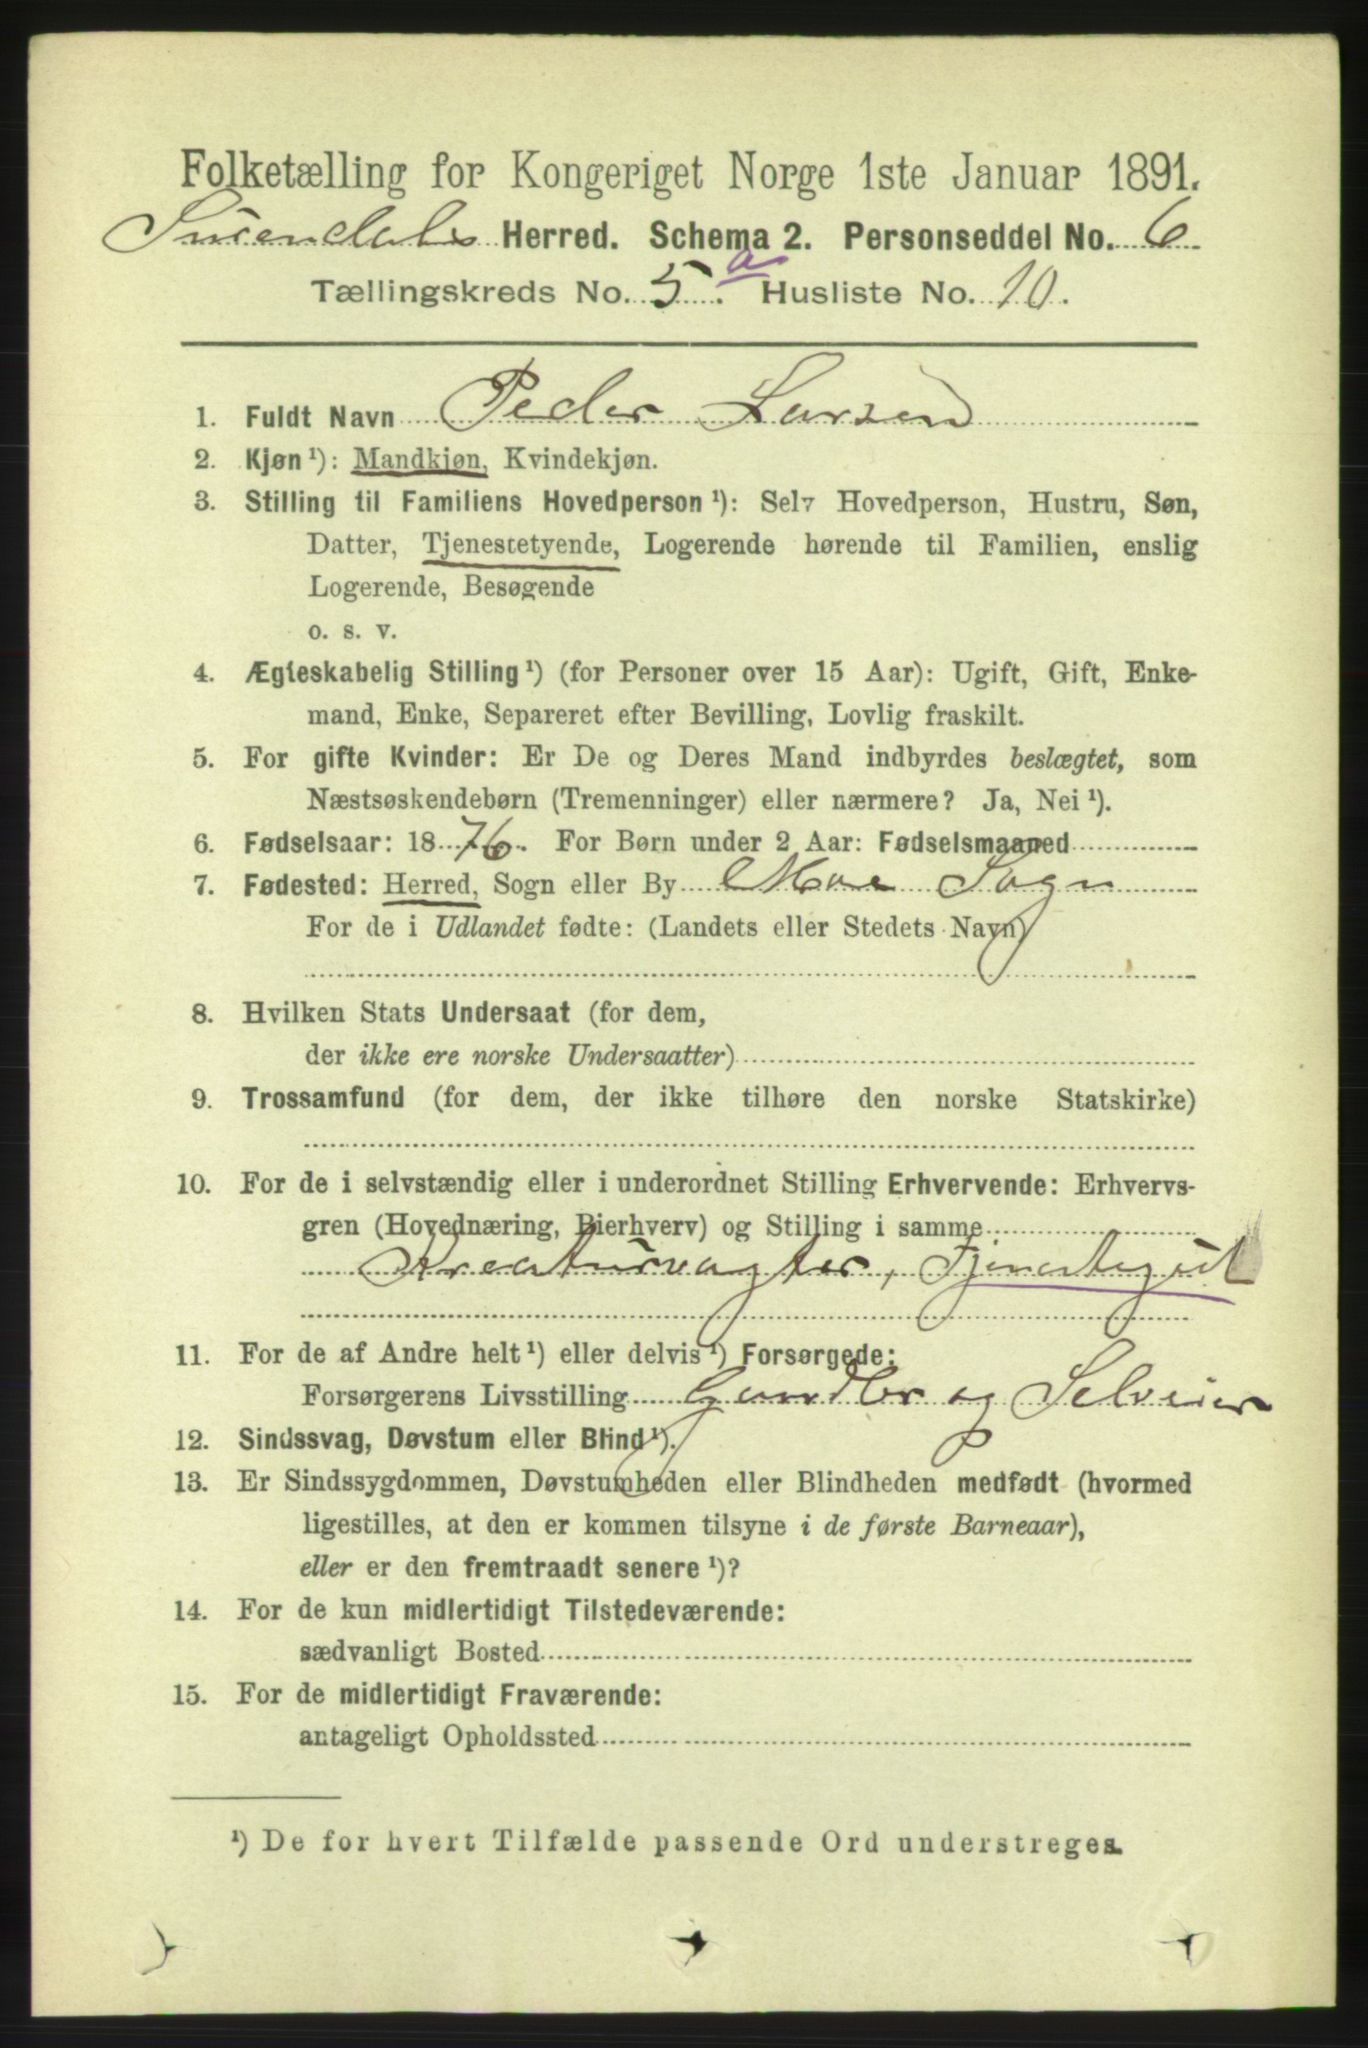 Folketælling for Kongeriget Norge 1ste Januar 1891.
Surendals Herred. Schema 2. Personseddel No. 6
Tællingskreds No. 5 a. Husliste No. 10.
1. Fuldt Navn Peder Larsen
2. Kjøn¹): Mandkjøn, Kvindekjøn.
3. Stilling til Familiens Hovedperson¹): Selv Hovedperson, Hustru, Søn,
Datter, Tjenestetyende, Logerende hørende til Familien, enslig
Logerende, Besøgende
o. s. v.
4. Ægteskabelig Stilling¹) (for Personer over 15 Aar): Ugift, Gift, Enke-
mand, Enke, Separeret efter Bevilling, Lovlig fraskilt.
5. For gifte Kvinder: Er De og Deres Mand indbyrdes beslægtet, som
Næstsøskendebørn (Tremenninger) eller nærmere? Ja, Nei¹).
6. Fødselsaar: 1876. For Børn under 2 Aar: Fødselsmaaned
7. Fødested: Herred, Sogn eller By Moe Sogn
For de i Udlandet fødte: (Landets eller Stedets Navn)
8. Hvilken Stats Undersaat (for dem,
der ikke ere norske Undersaatter)
9. Trossamfund (for dem, der ikke tilhøre den norske Statskirke)
10. For de i selvstændig eller i underordnet Stilling Erhvervende: Erhvervs-
gren (Hovednæring, Bierhverv) og Stilling i samme
Kreaturvagter, Tjenestegut
11. For de af Andre helt¹) eller delvis¹) Forsørgede:
Forsørgerens Livsstilling Gaardbr og Selveier
12. Sindssvag, Døvstum eller Blind¹).
13. Er Sindssygdommen, Døvstumheden eller Blindheden medfødt (hvormed
ligestilles, at den er kommen tilsyne i de første Barneaar),
eller er den fremtraadt senere¹)?
14. For de kun midlertidigt Tilstedeværende:
sædvanligt Bosted
15. For de midlertidigt Fraværende:
antageligt Opholdssted
¹) De for hvert Tilfælde passende Ord understreges.